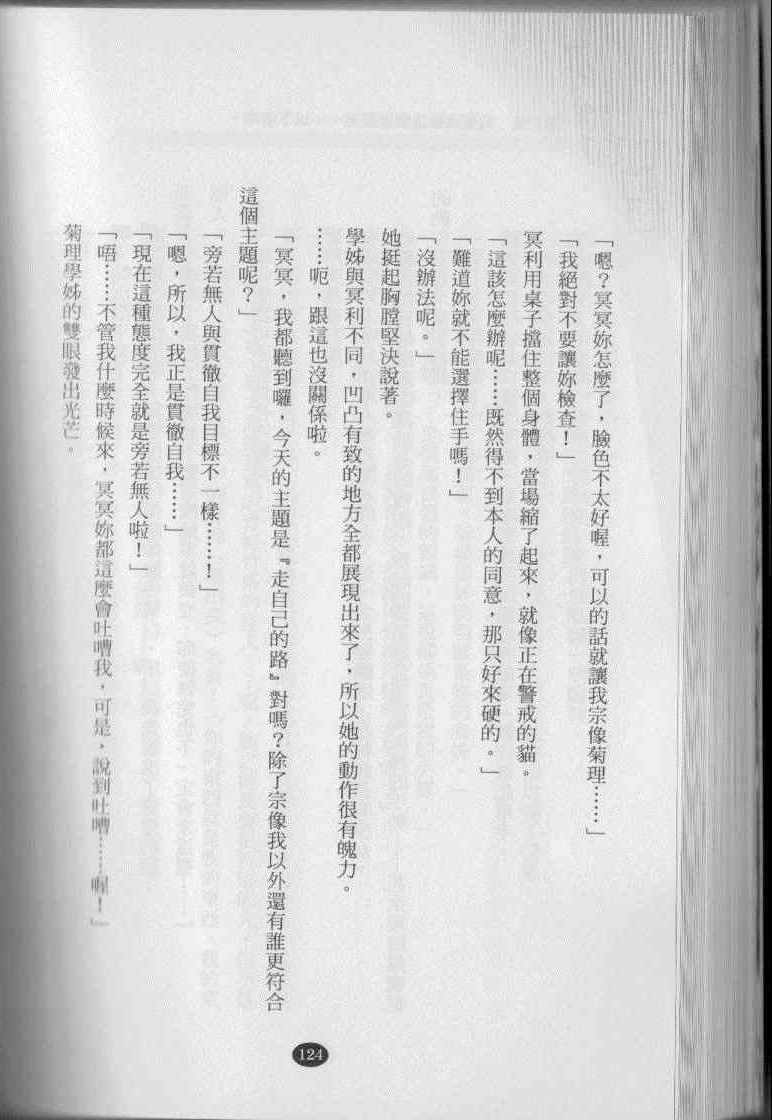 「嗯？冥冥妳怎麼了，臉色不太好喔，可以的話就讓我宗像菊理……」
「我絕對不要讓妳檢查！」
冥利用桌子擋住整個身體，當場縮了起來，就像正在警戒的貓。
「這該怎麼辦呢……既然得不到本人的同意，那只好來硬的。」
「難道妳就不能選擇住手嗎！」
「沒辦法呢。」
她挺起胸膛堅決說著。
學姊與冥利不同，凹凸有致的地方全都展現出來了，所以她的動作很有魄力。
……呃，跟這也沒關係啦。
「冥冥，我都聽到囉，今天的主題是『走自己的路』對嗎？除了宗像我以外還有誰更符合
這個主題呢？」
「旁若無人與貫徹自我目標不一樣……！」
「嗯，所以，我正是貫徹自我……」
「現在這種態度完全就是旁若無人啦！」
「唔……不管我什麼時候來，冥冥妳都這麼會吐嘈我，可是，說到吐嘈……喔！」
菊理學姊的雙眼發出光芒。
124